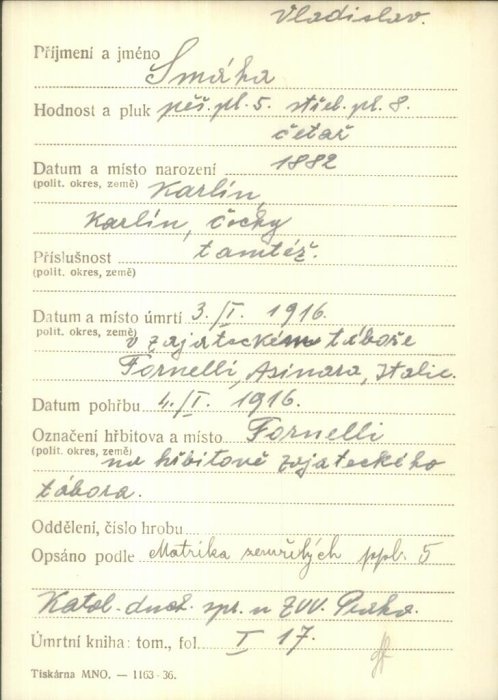 Vladislav.
Příjmení a jméno Smáha
Hodnost a pluk pěš. pl. 5. střel. pl. 8.
četař
Datum a místo narození 1882
(polit. okres, země) Karlín,
Karlín, čechy
Příslušnost tamtéž.
(polit. okres, země)
Datum a místo úmrtí 3./I. 1916.
polit. okres, země) v zajateckém táboře
Fornelli, Asinara, Italie.
Datum pohřbu 4./I. 1916.
Označení hřbitova a místo Fornelli
(polit. okres, země) na hřbitově zajateckého
tábora.
Oddělení, číslo hrobu
Opsáno podle Matrika zemřelých ppl. 5
Katol. duch. spr. u ZVV. Praha.
Úmrtní kniha: tom., fol. I 17.
Tiskárna MNO. — 1163-36.